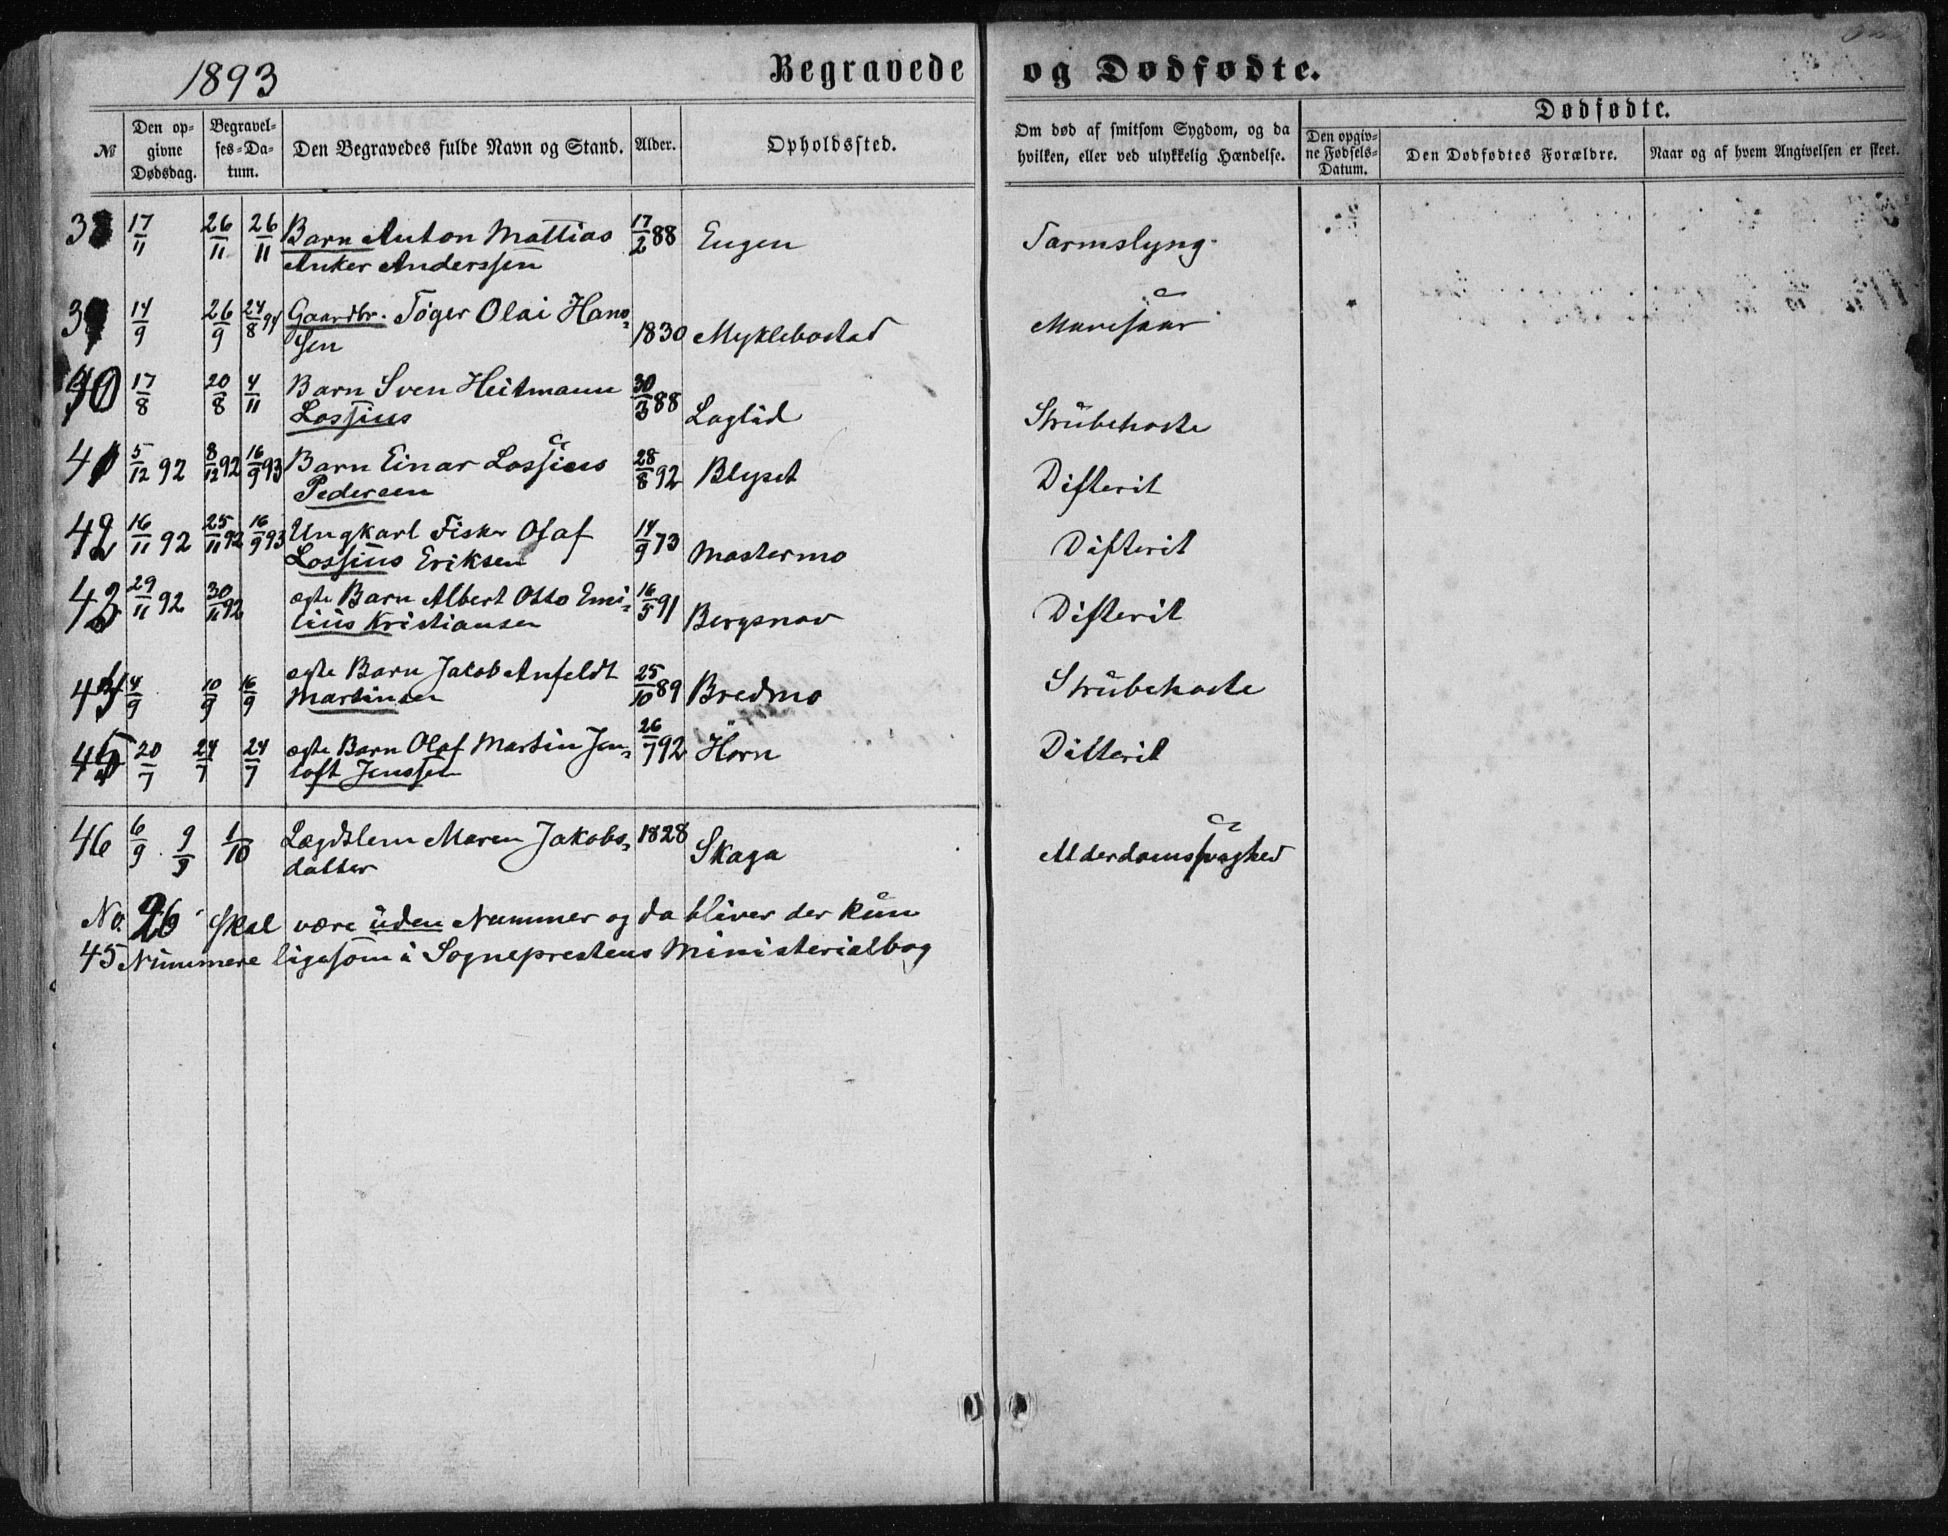 1893 Begravede og Dødfødte.
№ Den opgivne Dødsdag. Begravelses-Datum. Den Begravedes fulde Navn og Stand. Alder. Opholdssted. Om død af smitsom Sygdom, og da hvilken, eller ved ulykkelig Hændelse. Dødfødte. Den opgivne Fødsels-Datum. Den Dødfødtes Forældre. Naar og af hvem Angivelsen er skeet.
38 17/11 26/11 26/11 Barn Anton Mattias 17/2 88 Eugen Tarmslyng
Anker Anderssen
39 14/9 26/9 24/8 94 Gaardbr. Tøger Olai Hans-
sen 1830 Myklebostad Mavesaar
40 17/8 20/8 4/11 Barn Sven Heitmann 30/3 88
Lossius Laglid Strubehoste
41 5/12 92 8/12 92 16/9 93 Barn Einar Lossius 28/8 92 Blyset Difterit
Pedersen
42 16/11 92 25/11 92 16/9 93 Ungkarl Fisker Olaf 14/9 73
Lossius Eriksen Mastermo Difterit
43 29/11 92 30/11 92 ægte Barn Albert Otto Emi- 16/5 91
lius Kristiansen Bergsnov Difterit
44 4/9 10/9 16/9 ægte Barn Jacob Anfeldt 25/10 89
Martinsen Bredmo Strubehoste
45 20/7 24/7 24/7 ægte Barn Olaf Martin Jen- 26/7 92 Horn Difterit
toft Jenssen
46 6/9 9/9 1/10 Lægdslem Maren Jakobs- 1828
datter Skaga Alderdomssvaghed
No. 26 skal være uden Nummer og da bliver der kun
45 Nummere ligesom i Sogneprestens Ministerialbog